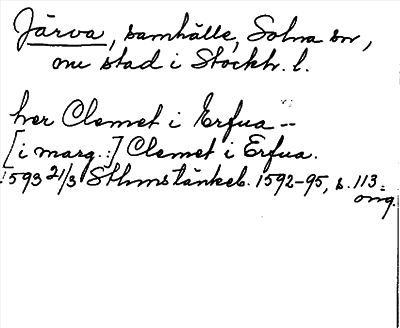 Järva, samhälle, Solna sn,
nu stad i Stockh. l.
her Clemet i Erfua --
[i marg.:] Clemet i Erfua.
1593 21/3 Sthmstänkeb. 1592-95, s. 113.
orig.